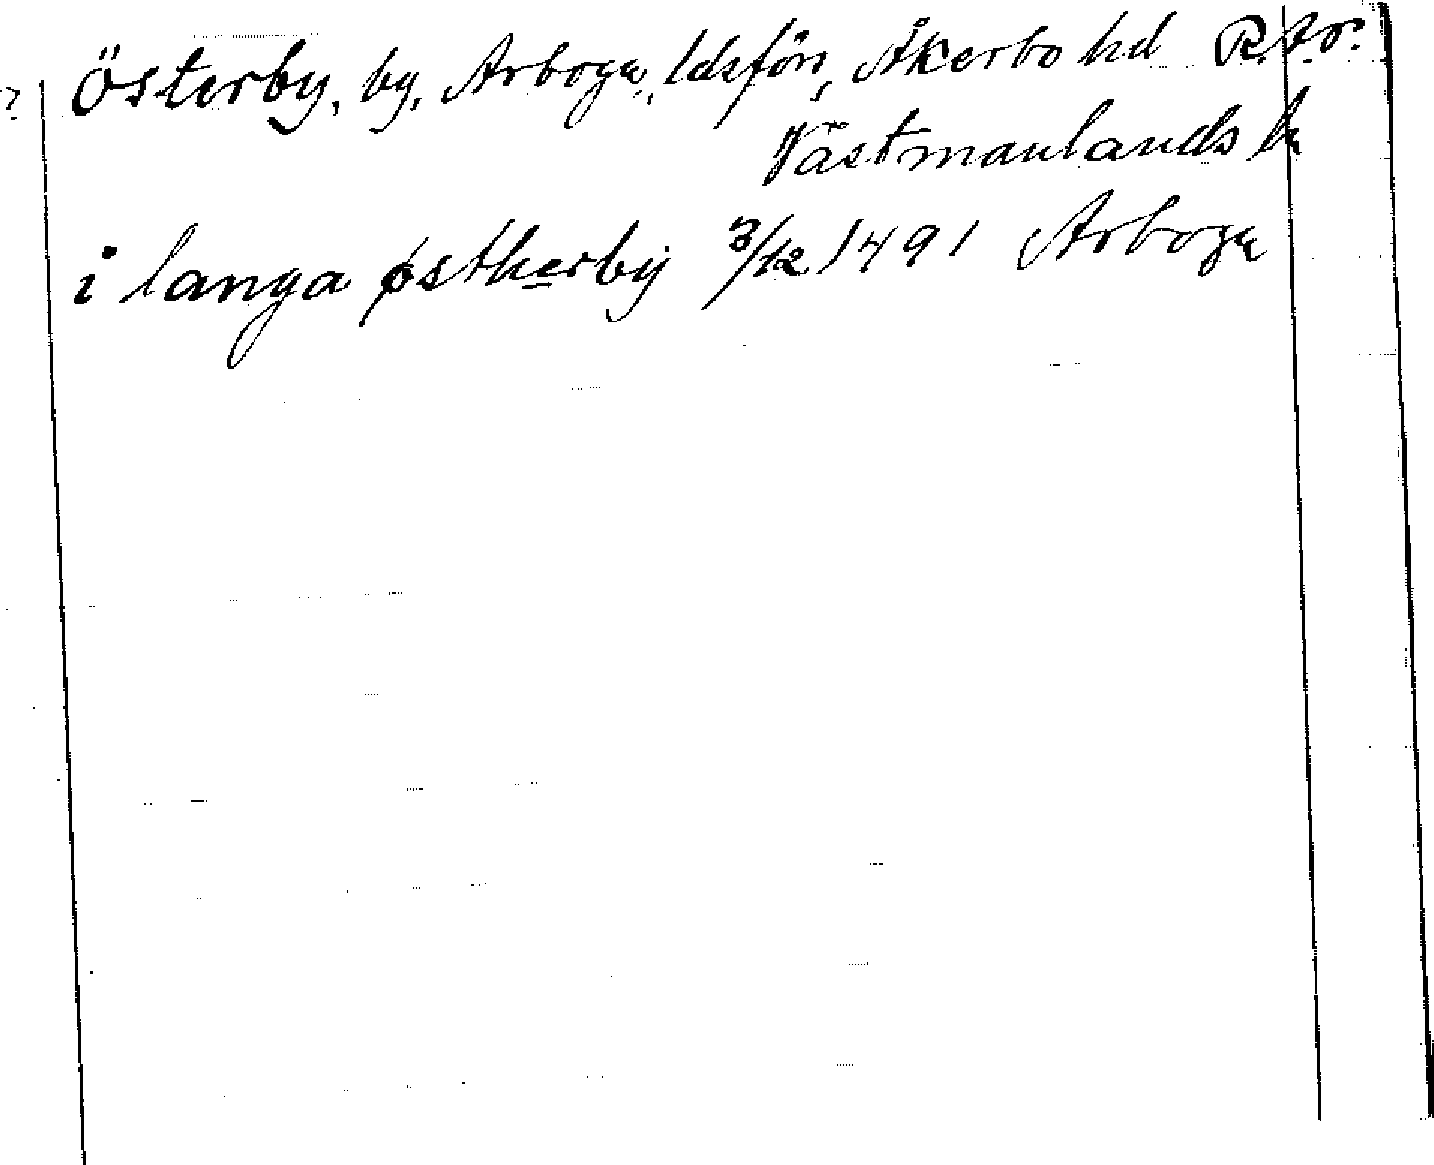 Österby, by, Arboga, ldsfön, Åkerbo hd R.A.o.
Västmanlands l
i langa østherby 3/12 1491 Arboga